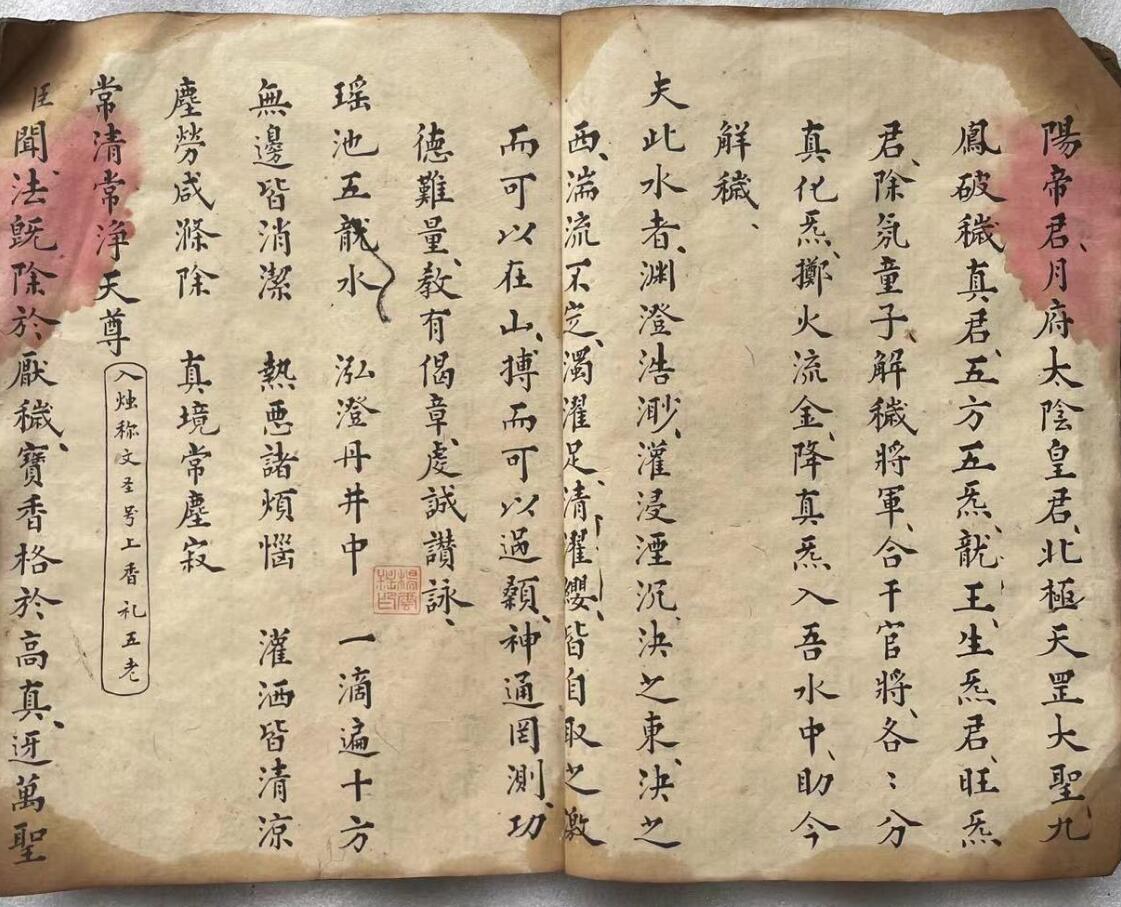 陽帝君、月府太陰皇君、北極天罡大聖、九
鳳破穢真君、五方五炁龍王、生炁君、旺炁
君、除氛童子、解穢將軍、合干官將、各〻分
真化炁、擲火流金、降真炁入吾水中、助今
解穢、
夫此水者、淵澄浩渺、灌浸湮沉、決之東、決之
西、湍流不定、濁濯足、清濯纓、皆自取之、激
而可以在山、搏而可以過顙、神通罔測、功
德難量、教有偈章、處誠讃詠、
瑶池五龍水 泓澄丹井中 一滴遍十方
無邊皆消潔 熱惡諸煩惱 灌洒皆清凉
塵勞咸滌除 真境常塵寂
常清常淨天尊
入烛称文圣号上香 礼五老
臣聞、法既除於厭穢、寶香格於高真、迓萬聖